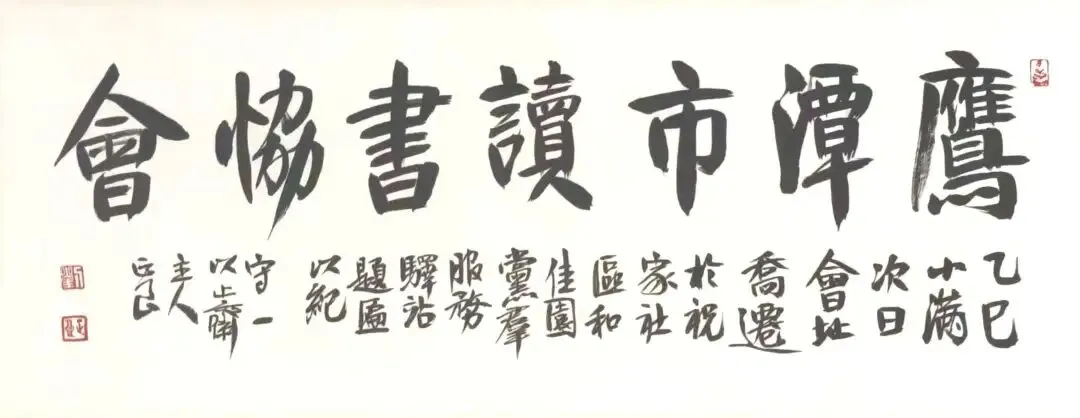 鷹潭市讀書恊會
乙巳
小滿
次日
會址
喬遷
於祝
家社
區和
佳園
黨羣
服務
驛站
題匾
以紀
守一
以止齋
主人
正良